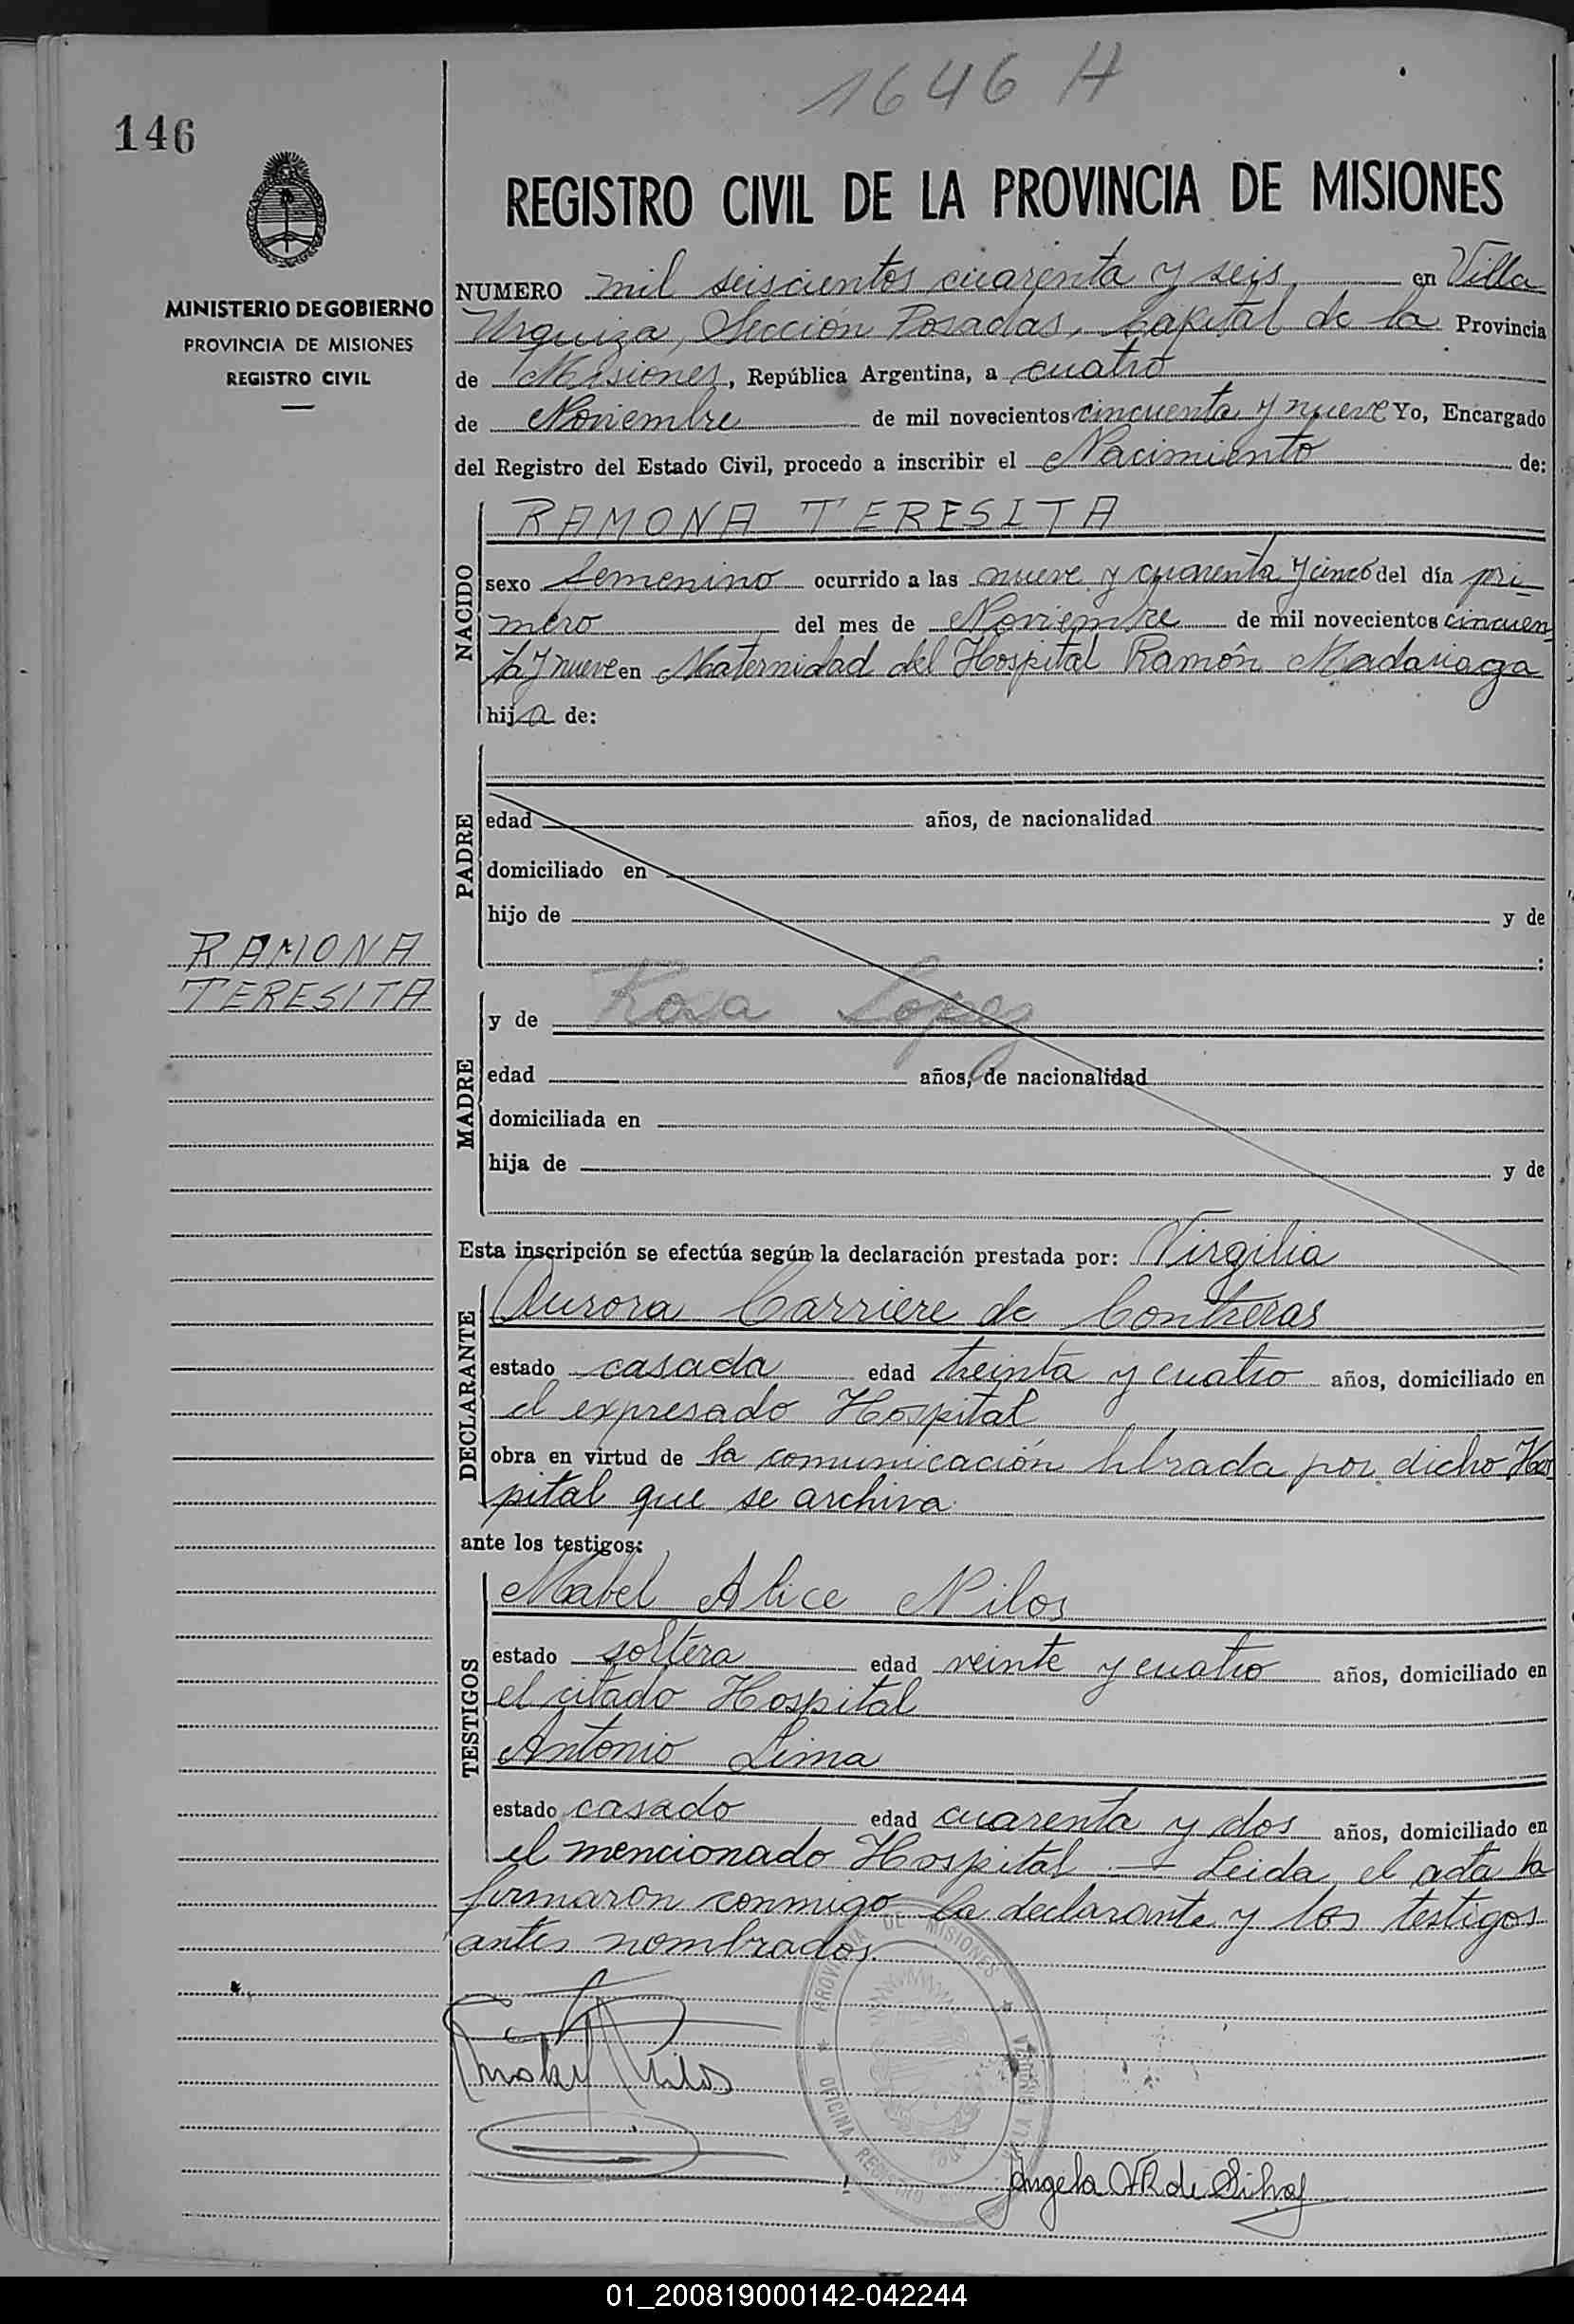 1646 H
146
REGISTRO CIVIL DE LA PROVINCIA DE MISIONES
MINISTERIO DE GOBIERNO
PROVINCIA DE MISIONES
REGISTRO CIVIL
NUMERO mil seiscientos cuarenta y seis en Villa
Urquiza, Sección Posadas, Capital de la Provincia
de Misiones, República Argentina, a cuatro
de Noviembre de mil novecientos cincuenta y nueve Yo, Encargado
del Registro del Estado Civil, procedo a inscribir el Nacimiento de:
NACIDO
RAMONA TERESITA
sexo femenino ocurrido a las nueve y cuarenta y cinco del día pri-
mero del mes de Noviembre de mil novecientos cincuen
ta y nueve en Maternidad del Hospital Ramón Madariaga
hija de:
PADRE
edad años, de nacionalidad
domiciliado en
hijo de y de
:
RAMONA
TERESITA
MADRE
y de Rosa Lopez
edad años, de nacionalidad
domiciliada en
hija de y de
Esta inscripción se efectúa según la declaración prestada por: Virgilia
DECLARANTE
Aurora Carriere de Contreras
estado casada edad treinta y cuatro años, domiciliado en
el expresado Hospital
obra en virtud de la comunicación librada por dicho Hos
pital que se archiva.
ante los testigos:
TESTIGOS
Mabel Alice Nilos
estado soltera edad veinte y cuatro años, domiciliado en
el citado Hospital
Antonio Lima
estado casado edad cuarenta y dos años, domiciliado en
el mencionado Hospital. — Leida el acta la
firmaron conmigo la declarante y los testigos
antes nombrados.
PROVINCIA DE MISIONES
OFICINA
Nilos
Angela de Silva
01_200819000142-042244